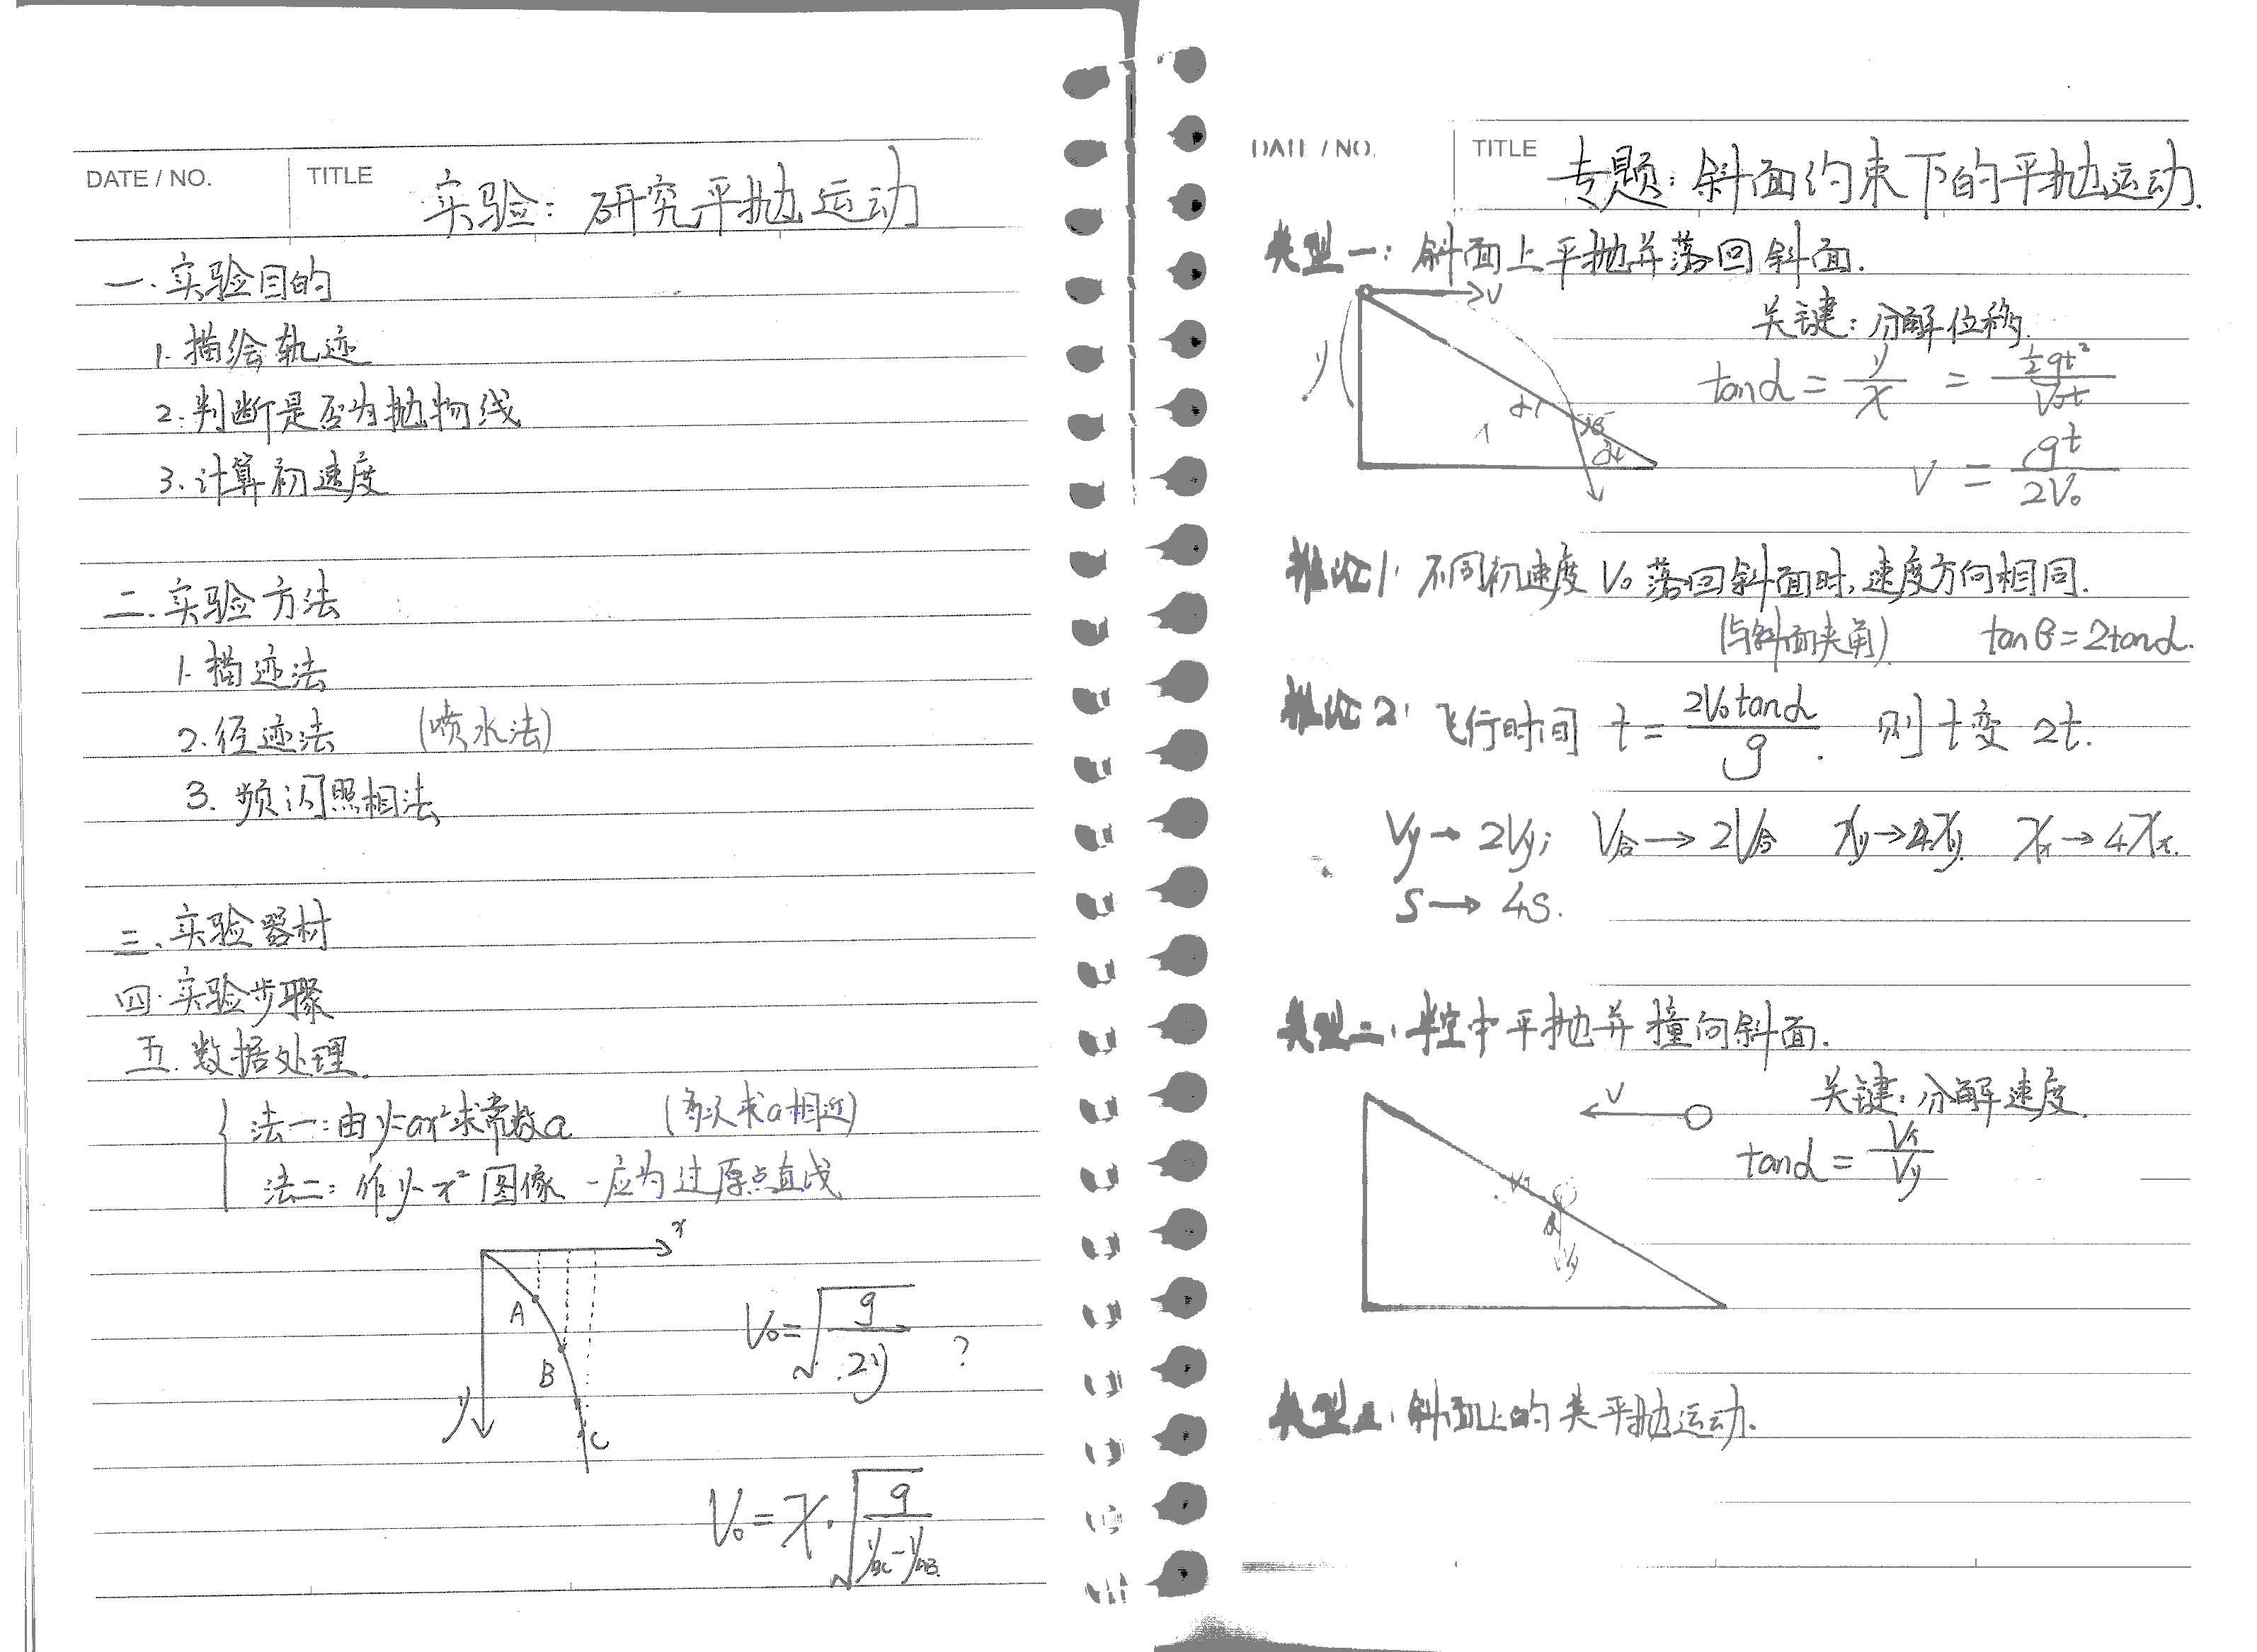 DATE / NO.
TITLE
实验：研究平抛运动
一.实验目的
1.描绘轨迹
2.判断是否为抛物线
3.计算初速度
二.实验方法
1.描迹法
2.径迹法 (喷水法)
3.频闪照相法
三.实验器材
四.实验步骤
五.数据处理.
法一:由y=ax²求常数a (多次求a相近)
法二:作y-x²图像 -应为过原点直线
x
A
B
C
y
V₀=√(g/2y) ?
V₀=x·√(g/(yBC-yAB))
DATE / NO.
TITLE
专题:斜面约束下的平抛运动.
类型一:斜面上平抛并落回斜面.
V
关键:分解位移.
y
tanα = y/x = ½gt²/V₀t
α
β
α
V = gt/2V₀
推论1.不同初速度V₀落回斜面时,速度方向相同.
(与斜面夹角) tanβ=2tanα.
推论2.飞行时间 t=2V₀tanα/g. 则t变2t.
Vy→2Vy; V合→2V合 xy→4xy. xx→4xx.
S→4S.
类型二.半空中平抛并撞向斜面.
V
关键:分解速度.
tanα=Vx/Vy
α
Vy
类型三.斜面上的类平抛运动.